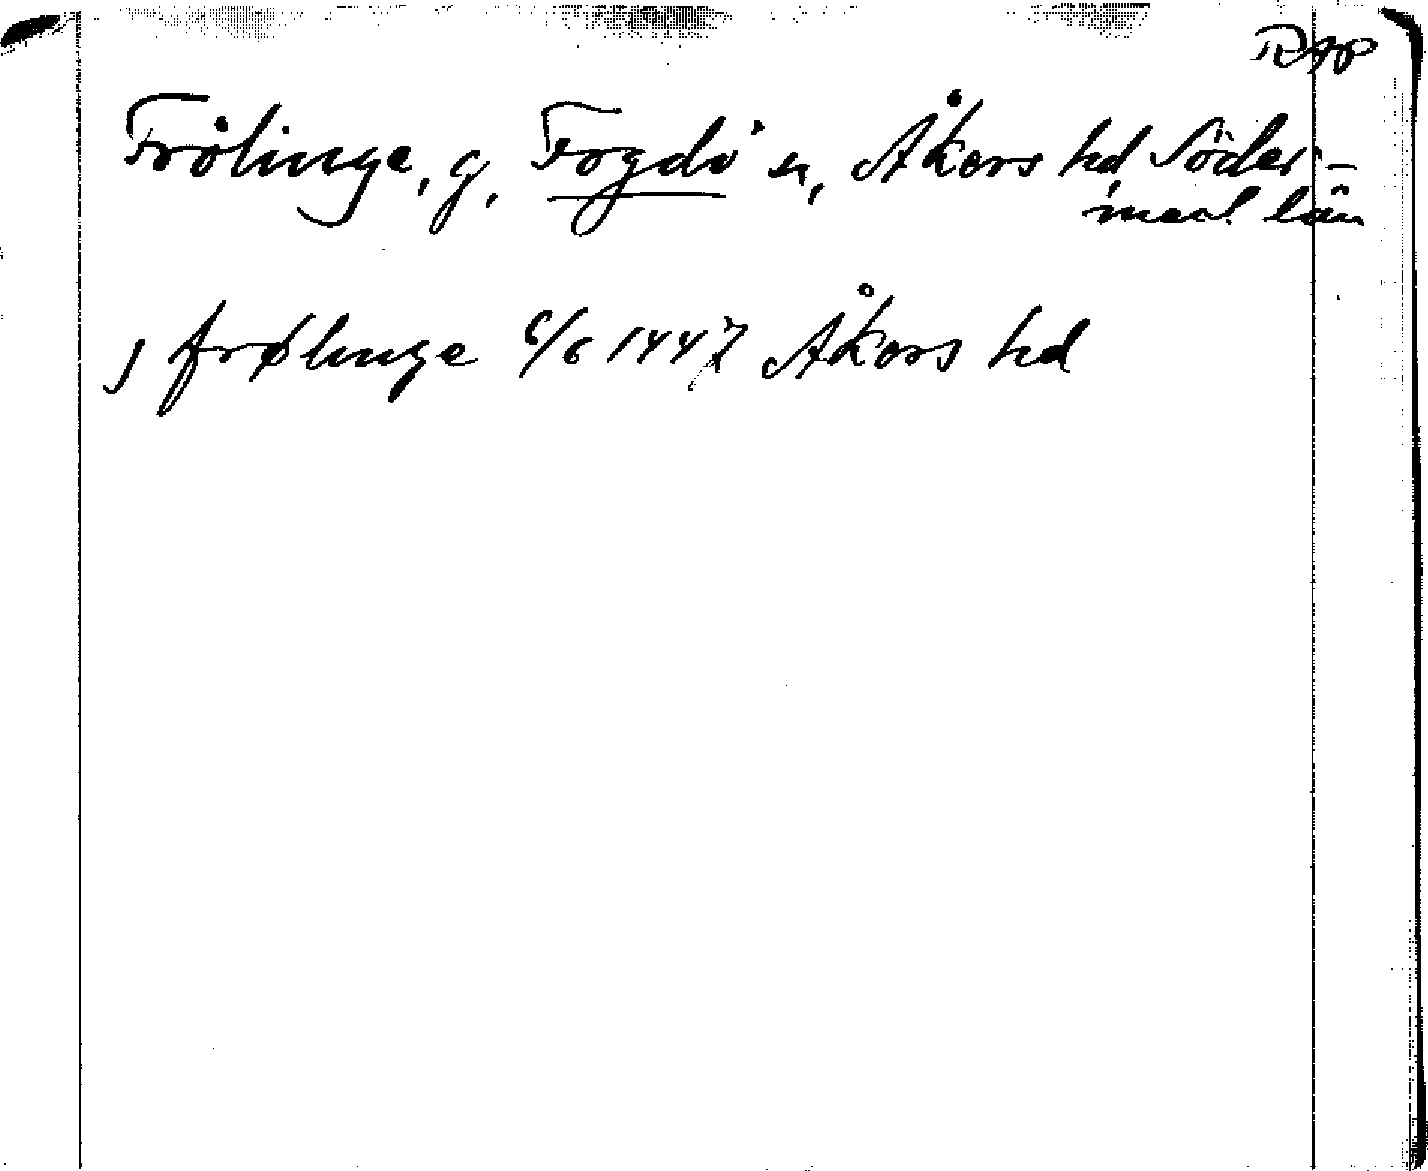 RAP
Frölinge, g, Fogdö sn, Åkers hd Söder-
manl. län
j frølinge 6/6 1447 Åkers hd